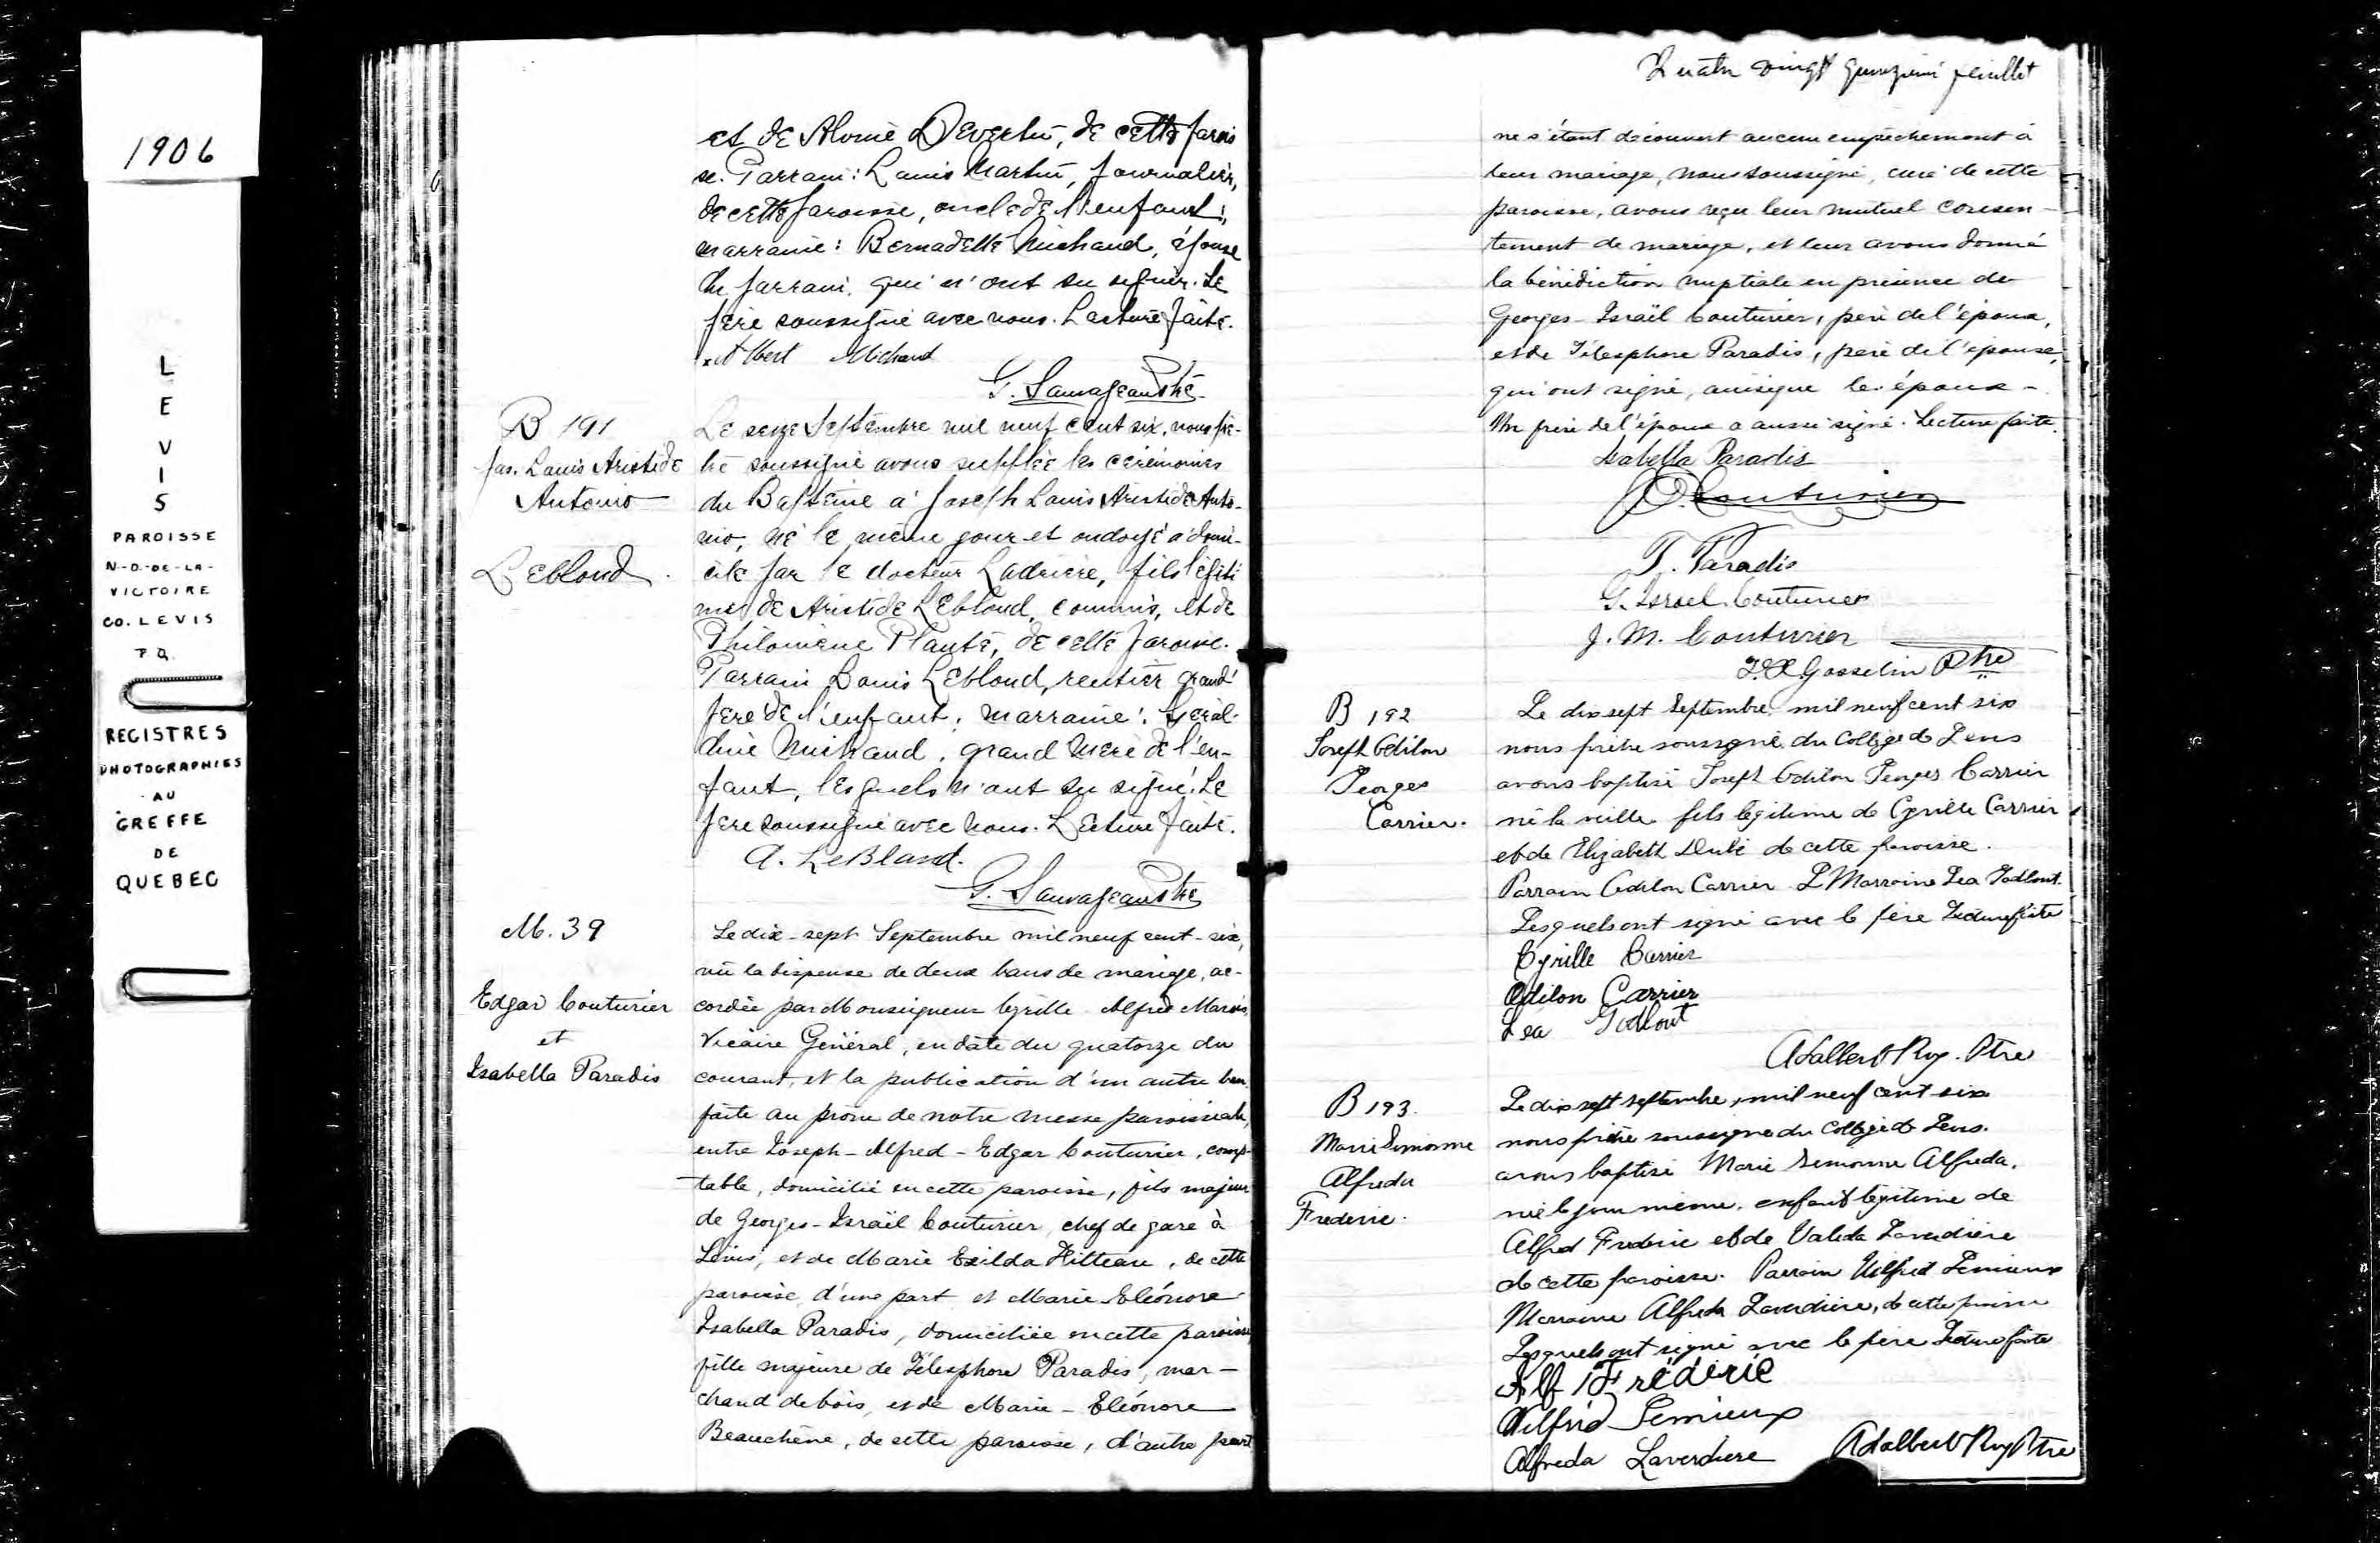 1906
L
E
V
I
S
PAROISSE
N.-D.-DE-LA-
VICTOIRE
CO. LEVIS
P.Q.
REGISTRES
PHOTOGRAPHIES
AU
GREFFE
DE
QUEBEC
et de Devertu, de cette parois
se. Parrain: Louis Martin, journalier,
de cette paroisse, oncle de l'enfant;
marraine: Bernadette Michaud, épouse
du parrain, qui n'ont su signer. Le
père soussigné avec nous. Lecture faite.
x Albert Michaud
G. Sauvageau Ptre
B 191
Jos. Louis Aristide
Antonio
Leblond
Le seize Septembre mil neuf cent six, nous prê-
tre soussigné avons supplée les cérémonies
du Baptême à Joseph Louis Aristide Anto-
nio, né le même jour et ondoyé à domi-
cile par le docteur Ladrière, fils légiti
me de Aristide Leblond, commis, et de
Philomène Plante, de cette paroisse.
Parrain Louis Leblond, rentier grand'
père de l'enfant; marraine: Géral-
dine Michaud, grand mère de l'en-
fant, lesquels n'ont su signé. Le
père soussigné avec nous. Lecture faite.
A. LeBlond.
G. Sauvageau Ptre
M. 39
Edgar Couturier
et
Isabella Paradis
Le dix-sept Septembre mil neuf cent-six,
vu la dispense de deux bans de mariage, ac-
cordée par Monseigneur Cyrille Alfred Marois,
Vicaire Général, en date du quatorze du
courant, et la publication d'un autre ban
faite au prône de notre messe paroissiale,
entre Joseph-Alfred-Edgar Couturier, comp-
table, domicilié en cette paroisse, fils majeur
de Georges-Israël Couturier, chef de gare à
Lévis, et de Marie Exilda , de cette
paroisse d'une part et Marie Eléonore
Isabella Paradis, domiciliée en cette paroisse,
fille majeure de Télesphore Paradis, mar-
chand de bois, et de Marie-Eléonore
Beauchêne, de cette paroisse, d'autre part
Quatre vingt quinzième feuillet
ne s'étant découvert aucun empêchement à
leur mariage, nous soussigné, curé de cette
paroisse, avons reçu leur mutuel consen-
tement de mariage, et leur avons donné
la bénédiction nuptiale en présence de
Georges-Israël Couturier, père de l'époux,
et de Télesphore Paradis, père de l'épouse,
qui ont signé, ainsi que les époux-
Un frère de l'époux a aussi signé. Lecture faite.
Isabella Paradis
Couturier
T. Paradis
G. Israel Couturier
J. M. Couturier
Gosselin Ptre
B 192
Joseph Odilon
Georges
Carrier.
Le dix sept Septembre, mil neuf cent six
nous prêtre soussigné du Collège de Lévis
avons baptisé Joseph Odilon Georges Carrier
né la veille fils légitime de Cyrille Carrier
et de Elizabeth Dubé de cette paroisse.
Parrain Odilon Carrier Marraine Lea Godbout.
Lesquels ont signé avec le père Lecture faite
Cyrille Carrier
Odilon Carrier
Lea Godbout
Adalbert Roy. Ptre
B 193.
Marie Simonne
Alfreda
Frederic.
Le dix sept septembre, mil neuf cent six
nous prêtre soussigné du Collège de Lévis.
avons baptisé Marie Simonne Alfreda,
née le jour même, enfant légitime de
Alfred Frederic et de Valeda Laverdière
de cette paroisse. Parrain Wilfrid Lemieux
Marraine Alfreda Laverdière, de cette paroisse
Lesquels ont signé avec le père Lecture faite
Alf Frédéric
Wilfrid Lemieux
Alfreda Laverdiere Adalbert Roy Ptre